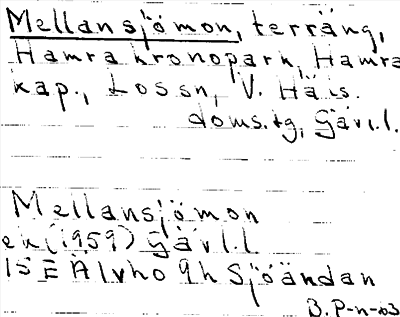 Mellansjömon, terräng,
Hamra kronopark, Hamra
kap., Lossn, V. Häls.
doms.tg, Gävl.l.
Mellansjömon
ek (1959) Gävl.l
15 E Älvho 9h Sjöändan
B. P-n-63